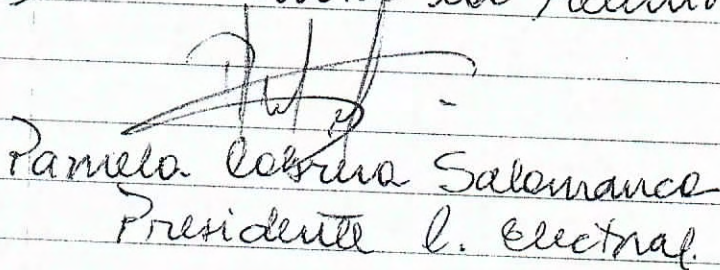 Pamela Cabrera Salamanca
Presidente C. Electoral.